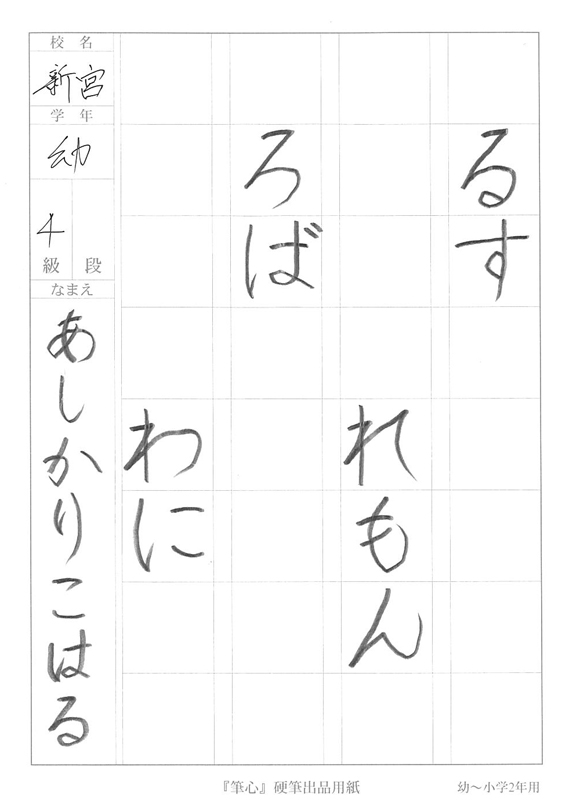 るす
れもん
ろば
わに
校名
新宮
学年
幼
4
級 段
なまえ
あしかりこはる
『筆心』硬筆出品用紙
幼〜小学2年用